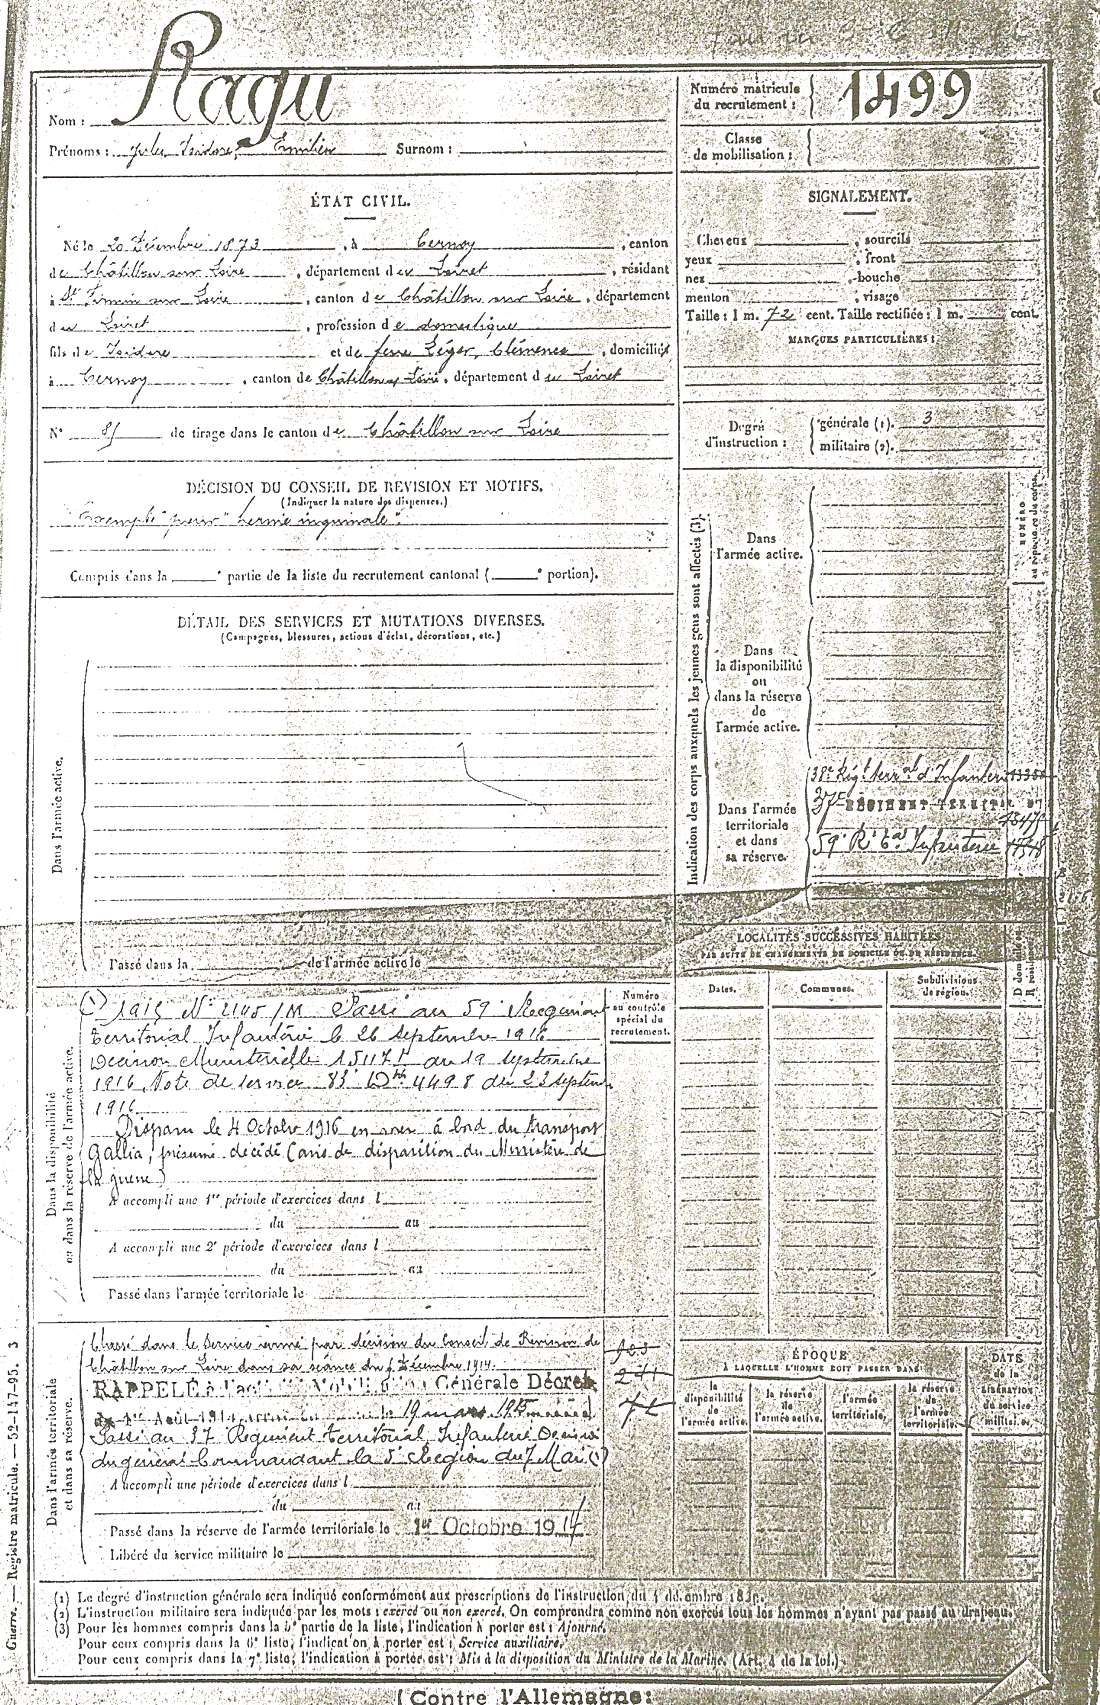 Nom : Ragu
Prénoms : Jules Isidore, Emilien Surnom :
Numéro matricule du recrutement : 1499
Classe de mobilisation :
ÉTAT CIVIL.
Né le 20 Décembre 1873, à Cernoy, canton
de Châtillon sur Loire, département du Loiret, résidant
à St Firmin sur Loire, canton de Châtillon sur Loire, département
du Loiret, profession de domestique
fils de Isidore et de feue Léger, Clémence, domiciliés
à Cernoy, canton de Châtillon s/ Loire, département du Loiret
N° de tirage dans le canton de Châtillon sur Loire
DÉCISION DU CONSEIL DE REVISION ET MOTIFS.
(Indiquer la nature des dispenses.)
Exempté "pour" hernie inguinale".
Compris dans la e partie de la liste du recrutement cantonal ( e portion).
DÉTAIL DES SERVICES ET MUTATIONS DIVERSES.
(Campagnes, blessures, actions d'éclat, décorations, etc.)
Dans l'armée active.
Passé dans la de l'armée active le
SIGNALEMENT.
Cheveux , sourcils
yeux , front
nez , bouche
menton , visage
Taille : 1 m. 72 cent. Taille rectifiée : 1 m. cent.
MARQUES PARTICULIÈRES :
Degré d'instruction :
générale (1). 3
militaire (2).
Indication des corps auxquels les jeunes gens sont affectés (3).
NUMÉRO au répertoire du corps.
Dans
l'armée active.
Dans
la disponibilité
ou
dans la réserve
de
l'armée active.
Dans l'armée
territoriale
et dans
sa réserve.
38e Régt terr al d'Infanterie
37e RÉGIMENT TERRITAL
59e R. tal Infanterie
LOCALITÉS SUCCESSIVES HABITÉES
PAR SUITE DE CHANGEMENTS DE DOMICILE OU DE RÉSIDENCE.
Dates. Communes. Subdivisions de région. D domicile R résidence.
Dans la disponibilité
ou dans la réserve de l'armée active.
Numéro
au contrôle
spécial du
recrutement.
(1) 1915 Passé au 59e Regiment
Territorial Infanterie le 26 septembre 1916
Decision Ministerielle du 19 septembre
1916, Note de service 4498 du 23 septem
1916
Disparu le 4 Octobre 1916 en mer à bord du transport
Gallia, présumé décédé (avis de disparition du Ministère de
la guerre)
A accompli une 1re période d'exercices dans l
du au
A accompli une 2e période d'exercices dans l
du au
Passé dans l'armée territoriale le
Dans l'armée territoriale
et dans sa réserve.
Classé dans le service armé par décision du Conseil de Revision de
Châtillon sur Loire dans sa séance du Décembre 1914.
RAPPELÉ à l'activité Mobilisation Générale Décret
du 1er Août 1914 19 mars 1915
Passé au 37 Regiment territorial Infanterie Decision
du général Commandant la 5e Région du 7 Mai (1)
A accompli une période d'exercices dans l
du au
Passé dans la réserve de l'armée territoriale le 1er Octobre 1917
Libéré du service militaire le
ÉPOQUE
À LAQUELLE L'HOMME DOIT PASSER DANS
la disponibilité de l'armée active. la réserve de l'armée active. l'armée territoriale. la réserve de l'armée territoriale.
DATE de la LIBÉRATION du service militaire.
(1) Le degré d'instruction générale sera indiqué conformément aux prescriptions de l'instruction du
(2) L'instruction militaire sera indiquée par les mots : exercé ou non exercé. On comprendra comme non exercés tous les hommes n'ayant pas passé au drapeau.
(3) Pour les hommes compris dans la partie de la liste, l'indication à porter est : Ajourné.
Pour ceux compris dans la 6e liste, l'indication à porter est : Service auxiliaire.
Pour ceux compris dans la 7e liste, l'indication à porter est : Mis à la disposition du Ministre de la Marine. (Art. 4 de la loi.)
Guerre. — Registre matricule. — 52-147-95. 3
(Contre l'Allemagne: